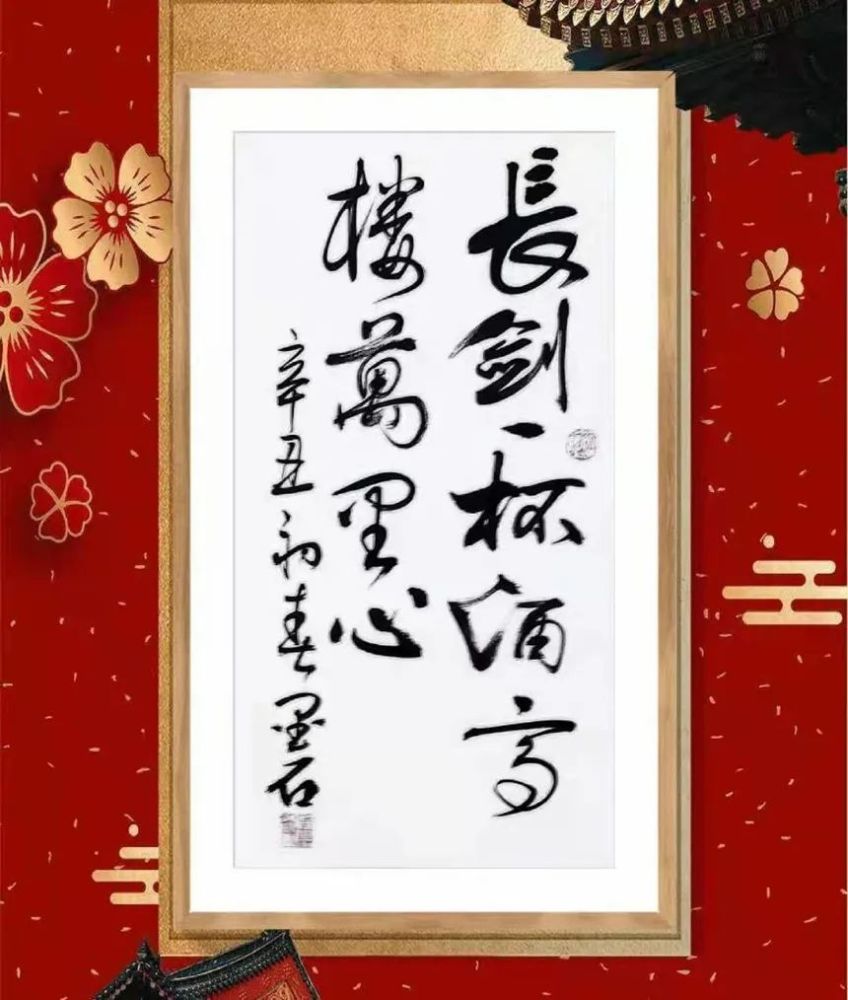 長劍一杯酒高
樓萬里心
辛丑初春墨石